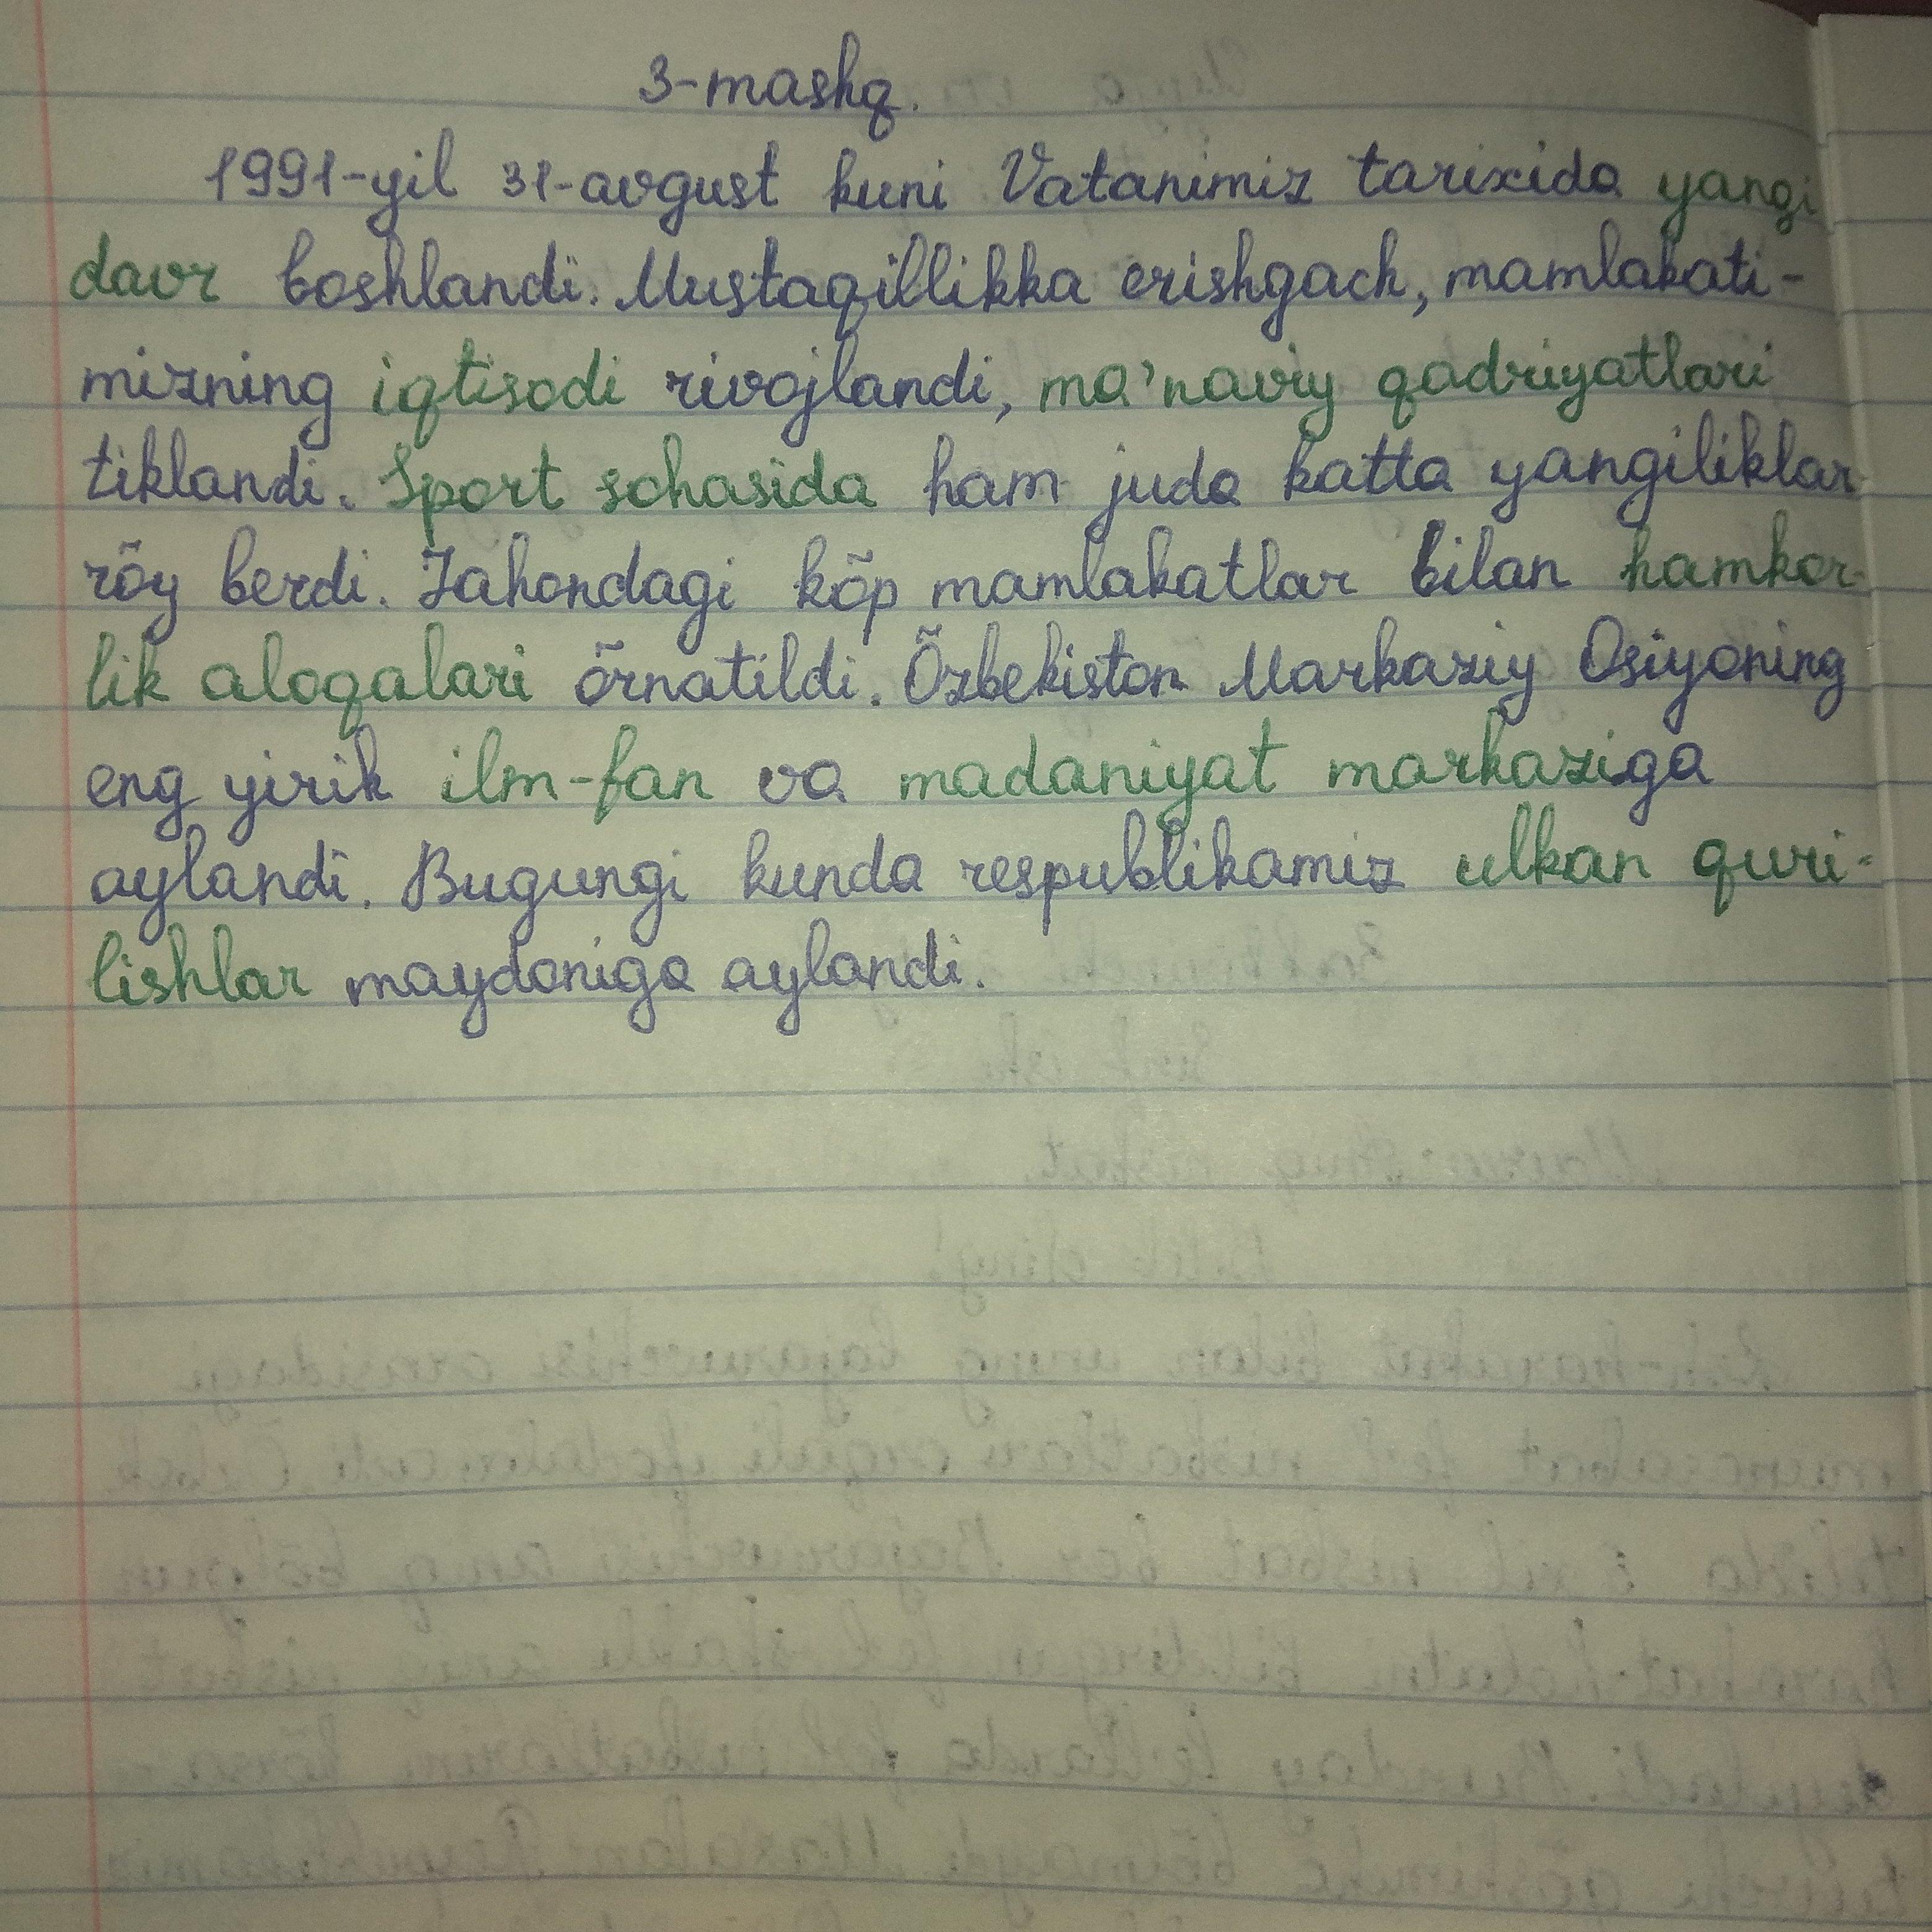 3-mashq.
1991-yil 31-avgust kuni Vatanimiz tarixida yangi
davr boshlandi. Mustaqillikka erishgach, mamlakati-
mizning iqtisodi rivojlandi, ma'naviy qadriyatlari
tiklandi. Sport sohasida ham juda katta yangiliklar
rõy berdi. Jahondagi kõp mamlakatlar bilan hamkor-
lik aloqalari õrnatildi. Õzbekiston Markaziy Osiyoning
eng yirik ilm-fan va madaniyat markaziga
aylandi. Bugungi kunda respublikamiz ulkan quri-
lishlar maydoniga aylandi.